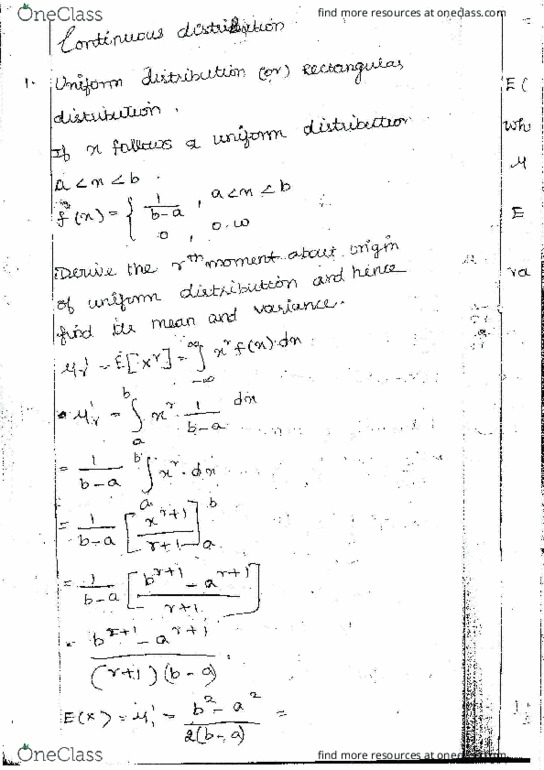 OneClass find more resources at oneclass.com
Continuous distribution
1. Uniform distribution (or) Rectangular
distribution.
If x follows a uniform distribution
a < x < b.
f(x) = { 1/(b-a) , a < x < b
0 , o.w
Derive the r^th moment about origin
of uniform distribution and hence
find the mean and variance.
μ_r' = E[x^r] = ∫_{-∞}^{∞} x^r f(x) dx
μ_r' = ∫_a^b x^r · 1/(b-a) dx
= 1/(b-a) ∫_a^b x^r · dx
= 1/(b-a) [x^{r+1}/(r+1)]_a^b
= 1/(b-a) [(b^{r+1} - a^{r+1})/(r+1)]
= (b^{r+1} - a^{r+1})/((r+1)(b-a))
E(x) = μ_1' = (b^2 - a^2)/(2(b-a)) =
E(
Whe
μ
E
va
OneClass find more resources at oneclass.com